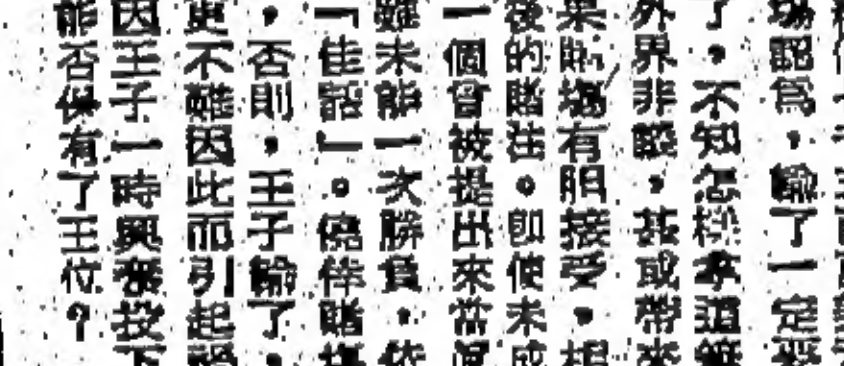 場認爲，輸了一定
了，不知怎樣拿這
外界非議，甚或帶來
果賭場有胆接受，相
後的賭注。卽使未成
一個曾被提出來當
雖未能一次勝負，依
「佳話」。僥倖賭場
，否則，王子輸了，
更不難因此而引起禍
因王子一時興來投下
能否保有了王位？